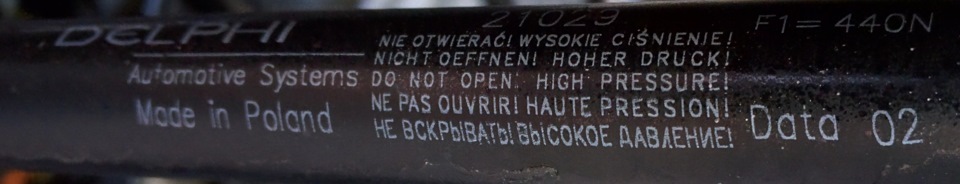 DELPHI
Automotive Systems
Made in Poland
21029
NIE OTWIERAĆ! WYSOKIE CIŚNIENIE!
NICHT OEFFNEN! HOHER DRUCK!
DO NOT OPEN. HIGH PRESSURE!
NE PAS OUVRIR! HAUTE PRESSION!
НЕ ВСКРЫВАТЬ! ВЫСОКОЕ ДАВЛЕНИЕ!
F1= 440N
Data 02